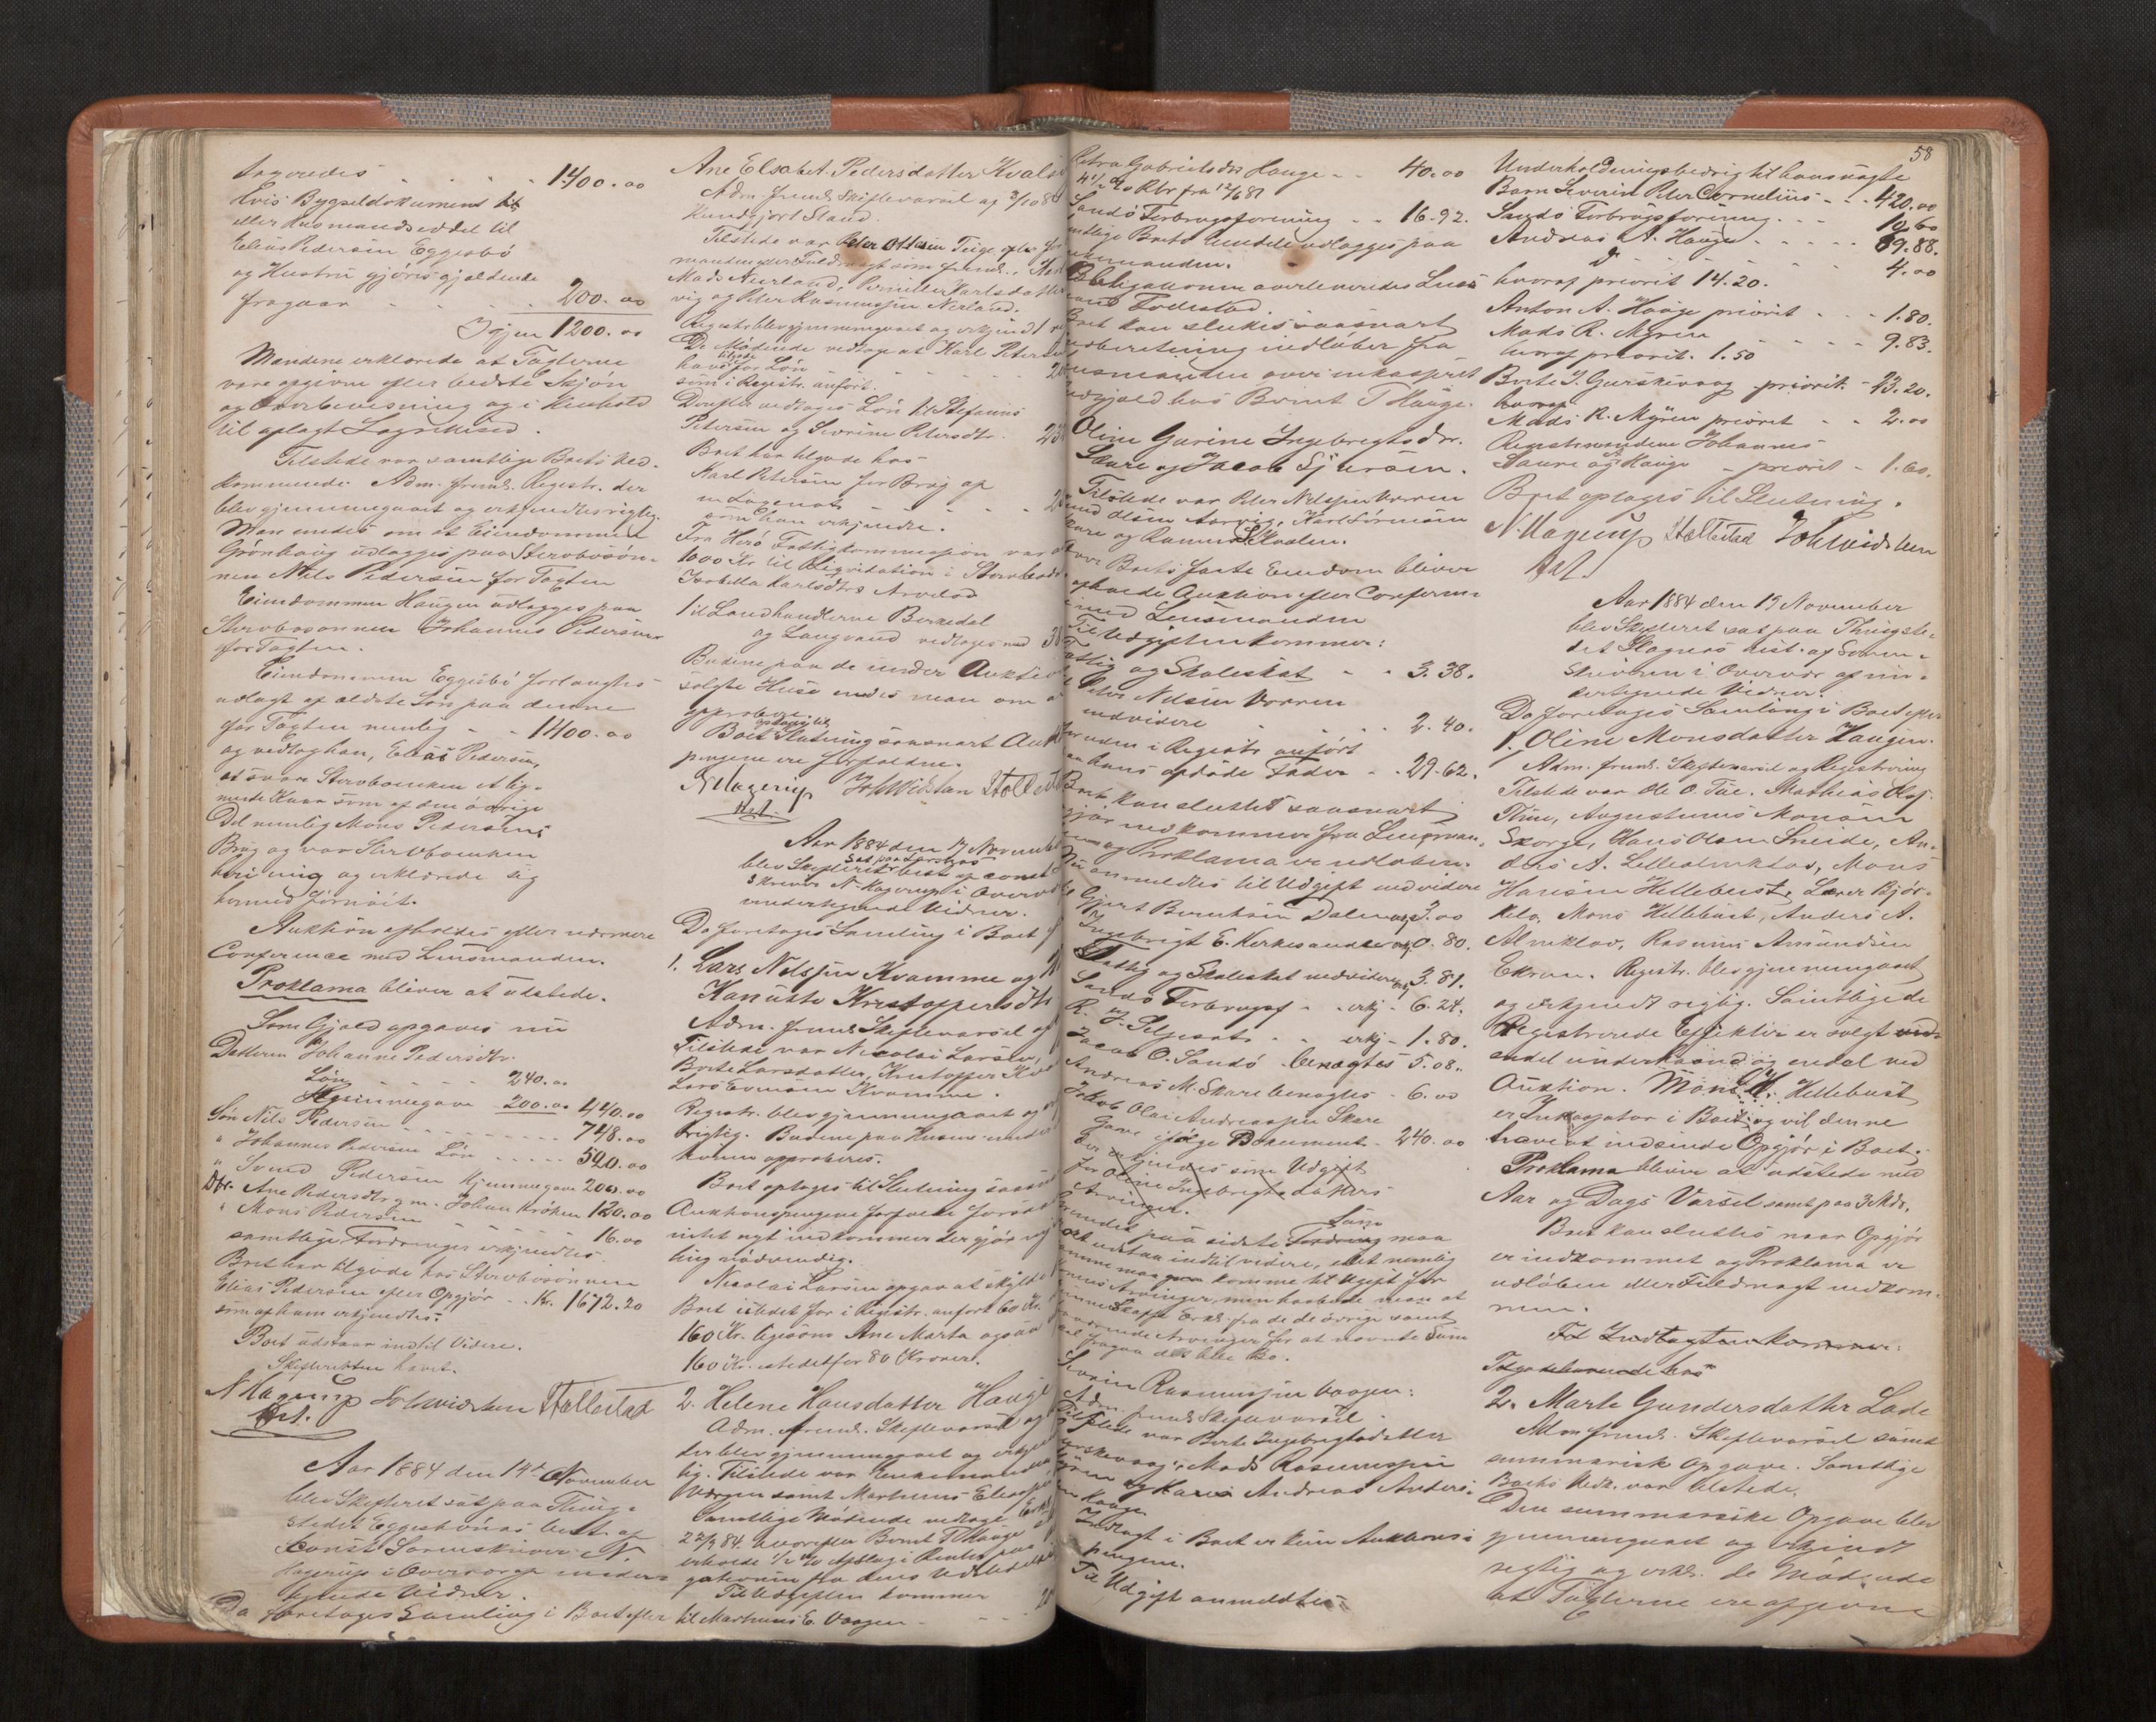 bageredes - - - 1400.00
Hvis Bygseldokument til
eller Husmandsseddel til
Elias Pedersen Eggesbö
og Hustru gjöres gjældende
fragaar - - - 200.00
Igjen 1200.00
Mændene erklærede at Taxterne
vare afgivne efter bedste Skjön
og Overbevisning og i Henhold
til aflagt Lagrettesed.
Tilstede var samtlige Boets Ved-
kommende. Adm. freml. Registr. der
blev gjennemgaaet og erkjendtes rigtig.
Man enedes om at Eiendommen
Grönhaug udlægges paa Stervbosön-
nen Nils Pedersen for Taxten
Eiendommen Haugen udlægges paa
Stervbosönnen Johannes Pedersen
for Taxten.
Eiendommen Eggesbö forlangtes
udlagt af ældste Sön paa denne
for Taxten nemlig - - 1400.00
og vedtog han, Elias Pedersen,
at svare Stervboenken alig-
nende Kaar som af den övrige
Del nemlig Mons Pedersens
Brug og var Stervboenken
heri enig og erklærede sig
hermed fornöiet.
Auktion afholdes efter nærmere
Conference med Lensmanden.
Proklama bliver at udstede.
Som Gjæld opgaves nu
Datteren Johanne Pedersdtr.
Lön - - - 240.00
Hjemmegave 200.00 440.00
Sön Nils Pedersen - - - 748.00
" Johannes Pedersen Lön - - - 520.00
" Svend Pedersen Hjemmegave 200.00
Dtr. Ane Pedersdtr g.m. Johan Kröken 120.00
" Mons Pedersen - - - 16.00
samtlige Fordringer erkjendtes.
Boet har tilgode hos Stervbosönnen
Elias Pedersen efter Opgjör - Kr. 1672.20
som af ham erkjendtes.
Boet udstaar indtil Videre.
Skifteretten hævet.
N Hagerup Joh Widsteen Hallestad
Kst.
Aar 1884 den 14de November
blev Skifteret sat paa Thing-
stedet Eggesbönæs best. af
Const. Sorenskriver N.
Hagerup i Overvær af under-
tegnede Vidner.
Da foretages Samling i Boet efter
Ane Elsabet Pedersdatter Kvals
Adm. freml. Skiftevarsel af 3/10 84
Kundgjort Stand.
Tilstede var Peter Ottesen Teige
Mads Nerland, Karlsdatter
og Peter Rasmussen Nerland.
Registr. blev gjennemgaaet og erkjendt
De Mödende vedtoge at Karl Petersen
have tilgode for Lön - - -
som i Registr. anfört.
Derefter vedtoges Lön til Stefanus
Petersen og Severine Petersdtr.
Boet har tilgode hos
Karl Petersen for Brug af
som han erkjendte.
Fra Herö Fattigkommission var
1000 Kr. til Ligvidation i Stervboets
Isabella Karlsdtrs Arvelod
til Landhandlerne Berredal
og Langvand vedtoges med 3
Budene paa de under Auktion
solgte Huse enedes man om at
approbere.
Boet optages til Slutning saasnart Auk
pengene ere forfaldne.
N Hagerup Joh Widsteen Hallestad
Kst.
Aar 1884 den 17 November
blev Skifteret sat paa best. af const
skriver N. Hagerup i Overvær
undertegnede Vidner.
Da foretages Samling i Boet
1. Lars Nilssen Kvamme og
Hanutte Kristoffersdtr
Adm. freml. Skiftevarsel
Tilstede var Nicolai Larsen,
Berte Larsdatter, Kristoffer
Lars Evensen Kvamme.
Registr. blev gjennemgaaet og
rigtig. Budene paa Husene
approberes.
Boet optages til Slutning saasnart
Auktionspengene forfalde forsaavidt
intet nyt indkommer der gjör
ling nödvendig.
Nicolai Larsen opgav at skylde
Boet istedet for i Registr. anfört 60 Kr.
160 Kr. ligesom Ane Marta ogsaa
160 Kr. istedetfor 80 Kroner.
2. Helene Hansdatter Hauge
Adm. freml. Skiftevarsel og
der blev gjennemgaaet og erkjendt
tig. Tilstede var Enkemanden
Værgen samt Marthinus Eliassen
Samtlige Mödende vedtoge
22/3 84 hvorefter Bernt T Hauge
Til Udgiften kommer
til Marthinus E. Vaagen - - -
58
Petra Gabrielsdtr Hauge - - 40.00
4 1/2 % Rtr fra 12/6 81
Sandö Forbrugsforening - - 16.92.
samtlige Boets Eiendele udlægges paa
Enkemanden.
Obligationen overleveredes
Boet kan sluttes saasnart
Indberetning indlöber fra
Lensmanden over inkasseret
hos Bernt T Hauge.
Oline Gurine Ingebrigtsdtr.
Skare og Jacob Sjursen.
Tilstede var Peter Nilssen Vorren
Olsen Aarvig, Karl Sörensen
Skare og Rasmus Kvalen.
Boets faste Eiendom bliver
afholde Auktion efter Conferm
med Lensmanden
Til Udgiften kommer:
Fattig og Skoleskat - - 3.38.
Peter Nilsen Vorren
medvidere - - - 2.40.
uden i Registr. anfört
hans afdöde Fader - - 29.62.
Boet kan sluttes saasnart
Opgjör indkommer fra Lensman-
og Proklama er udlöben.
Nu anmeldtes til Udgift medvidere
Gjert Berntsen Dalen erkj 3.00
Ingebrigt E. Kirkesandnes erkj 0.80.
Fattig og Skoleskat medvidere erkj 3.81.
Sandö Forbrugsf - - erkj - 6.24.
R. J. Seljesæt - - erkj - 1.80.
Jacob O. Sandö - benægtes 5.08.
Andreas M. Skare benægtes - 6.00
Jakob Olai Andreassen Skare
Gave ifölge Dokument - 240.00
der erkjendes som Udgift
for Oline Ingebrigtsdatters
Arvinger.
Sum
Fremdet paa sidste Fordring maa
Boet udstaa indtil videre, idet nemlig
komme til Udgift for
Arvinger, men havde man at
skaffe Erkl. fra de övrige samt
Arvinger for at nævnte Sum
fragaa det hele Bo.
Severin Rasmussen Vaagen:
Adm. freml. Skiftevarsel.
Tilstede var Berte Ingebrigtsdatter
Gurskevaag, Mads Rasmussen
Myren og Hans Andreas Anders-
Hauge
Indtægt i Boet er kun Auktions-
pengene.
Til Udgift anmeldtes
Underholdningsbidrag til hans uægte
Barn Severin Peter Cornelius - - 420.00
Sandö Forbrugsforening. - - 10.60
Andreas A. Hauge - - - 89.88.
D - - - 4.00
hvoraf priorit 14.20.
Anton A. Hauge priorit - - 1.80.
Mads R. Myren - - - 9.83.
hvoraf priorit. 1.50
Berte I. Gurskevaag priorit. - 23.20.
hvoraf
Mads R. Myren priorit - - 2.00
Registermændene Johannes
Saure og Hauge - priorit - 1.60.
Boet optages til Slutning.
N. Hagerup Hallestad Joh Widsteen
Kst.
Aar 1884 den 19 November
blev Skifteret sat paa Thingste-
det Slagnæs best. af Soren-
skriveren i Overvær af un-
dertegnede Vidner.
Da foretages Samling i Boet efter
1. Oline Monsdatter Haugen.
Adm. freml. Skiftevarsel og Registrering
Tilstede var Ole O. Tue. Mathias Olaj.
Thue, Augustinus Monsen
Skorge, Hans Olsen Sneide, An-
ders A. Lillealmklov, Mons
Hansen Hellebust, Lærer Björ-
kelo, Mons Hellebust, Anders A.
Almklov, Rasmus Amundsen
Ekran. Registr. blev gjennemgaaet
og erkjendt rigtig. Samtlige de
Registrerede Effekter er solgt ved
endel underhaand og endel ved
Auktion. Mons H. Hellebust
er Inkassator i Boet og vil denne
have at indsende Opgjör i Boet.
Proklama bliver at udstede med
Aar og Dags Varsel samt paa 3 Mdr.
Boet kan sluttes naar Opgjör
er indkommet og Proklama er
udlöben eller Fuldmagt indkom-
men.
Til Indtægten kommer:
Tilgodehavende hos
2. Marte Gundersdatter Lade
Adm freml. Skiftevarsel samt
summarisk Opgave. Samtlige
Boets Vedk. var tilstede.
Den summariske Opgave blev
gjennemgaaet og erkjendt
rigtig og erkl. de Mödende
at Taxterne ere afgivne